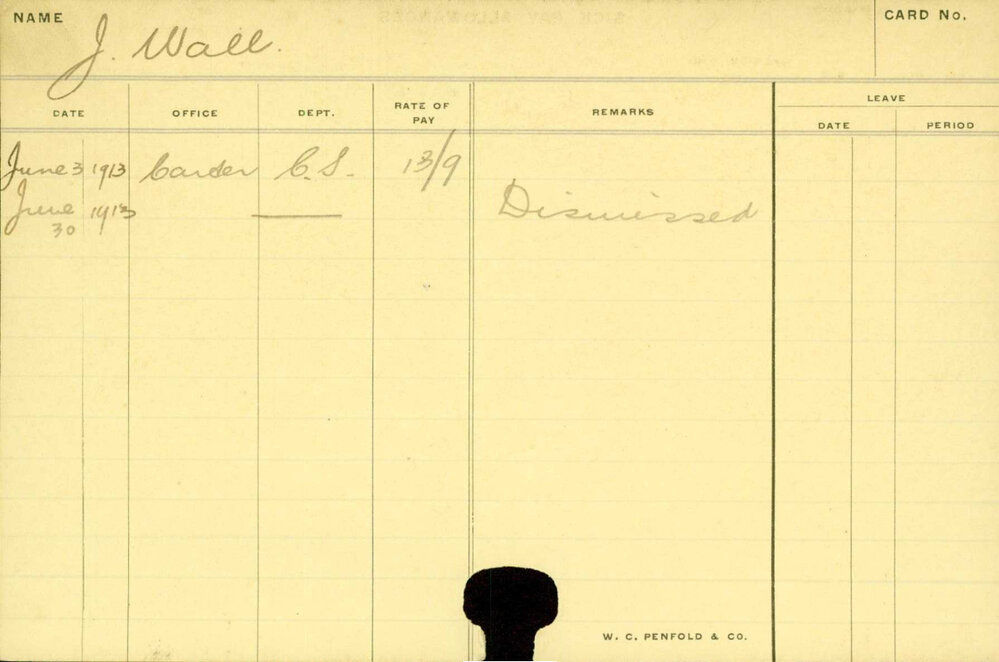 NAME J. Wall. CARD No.
LEAVE
DATE OFFICE DEPT. RATE OF PAY REMARKS DATE PERIOD
June 3 1913 Carter C.S. 13/9
June 30 1913 —— Dismissed
W. C. PENFOLD & CO.